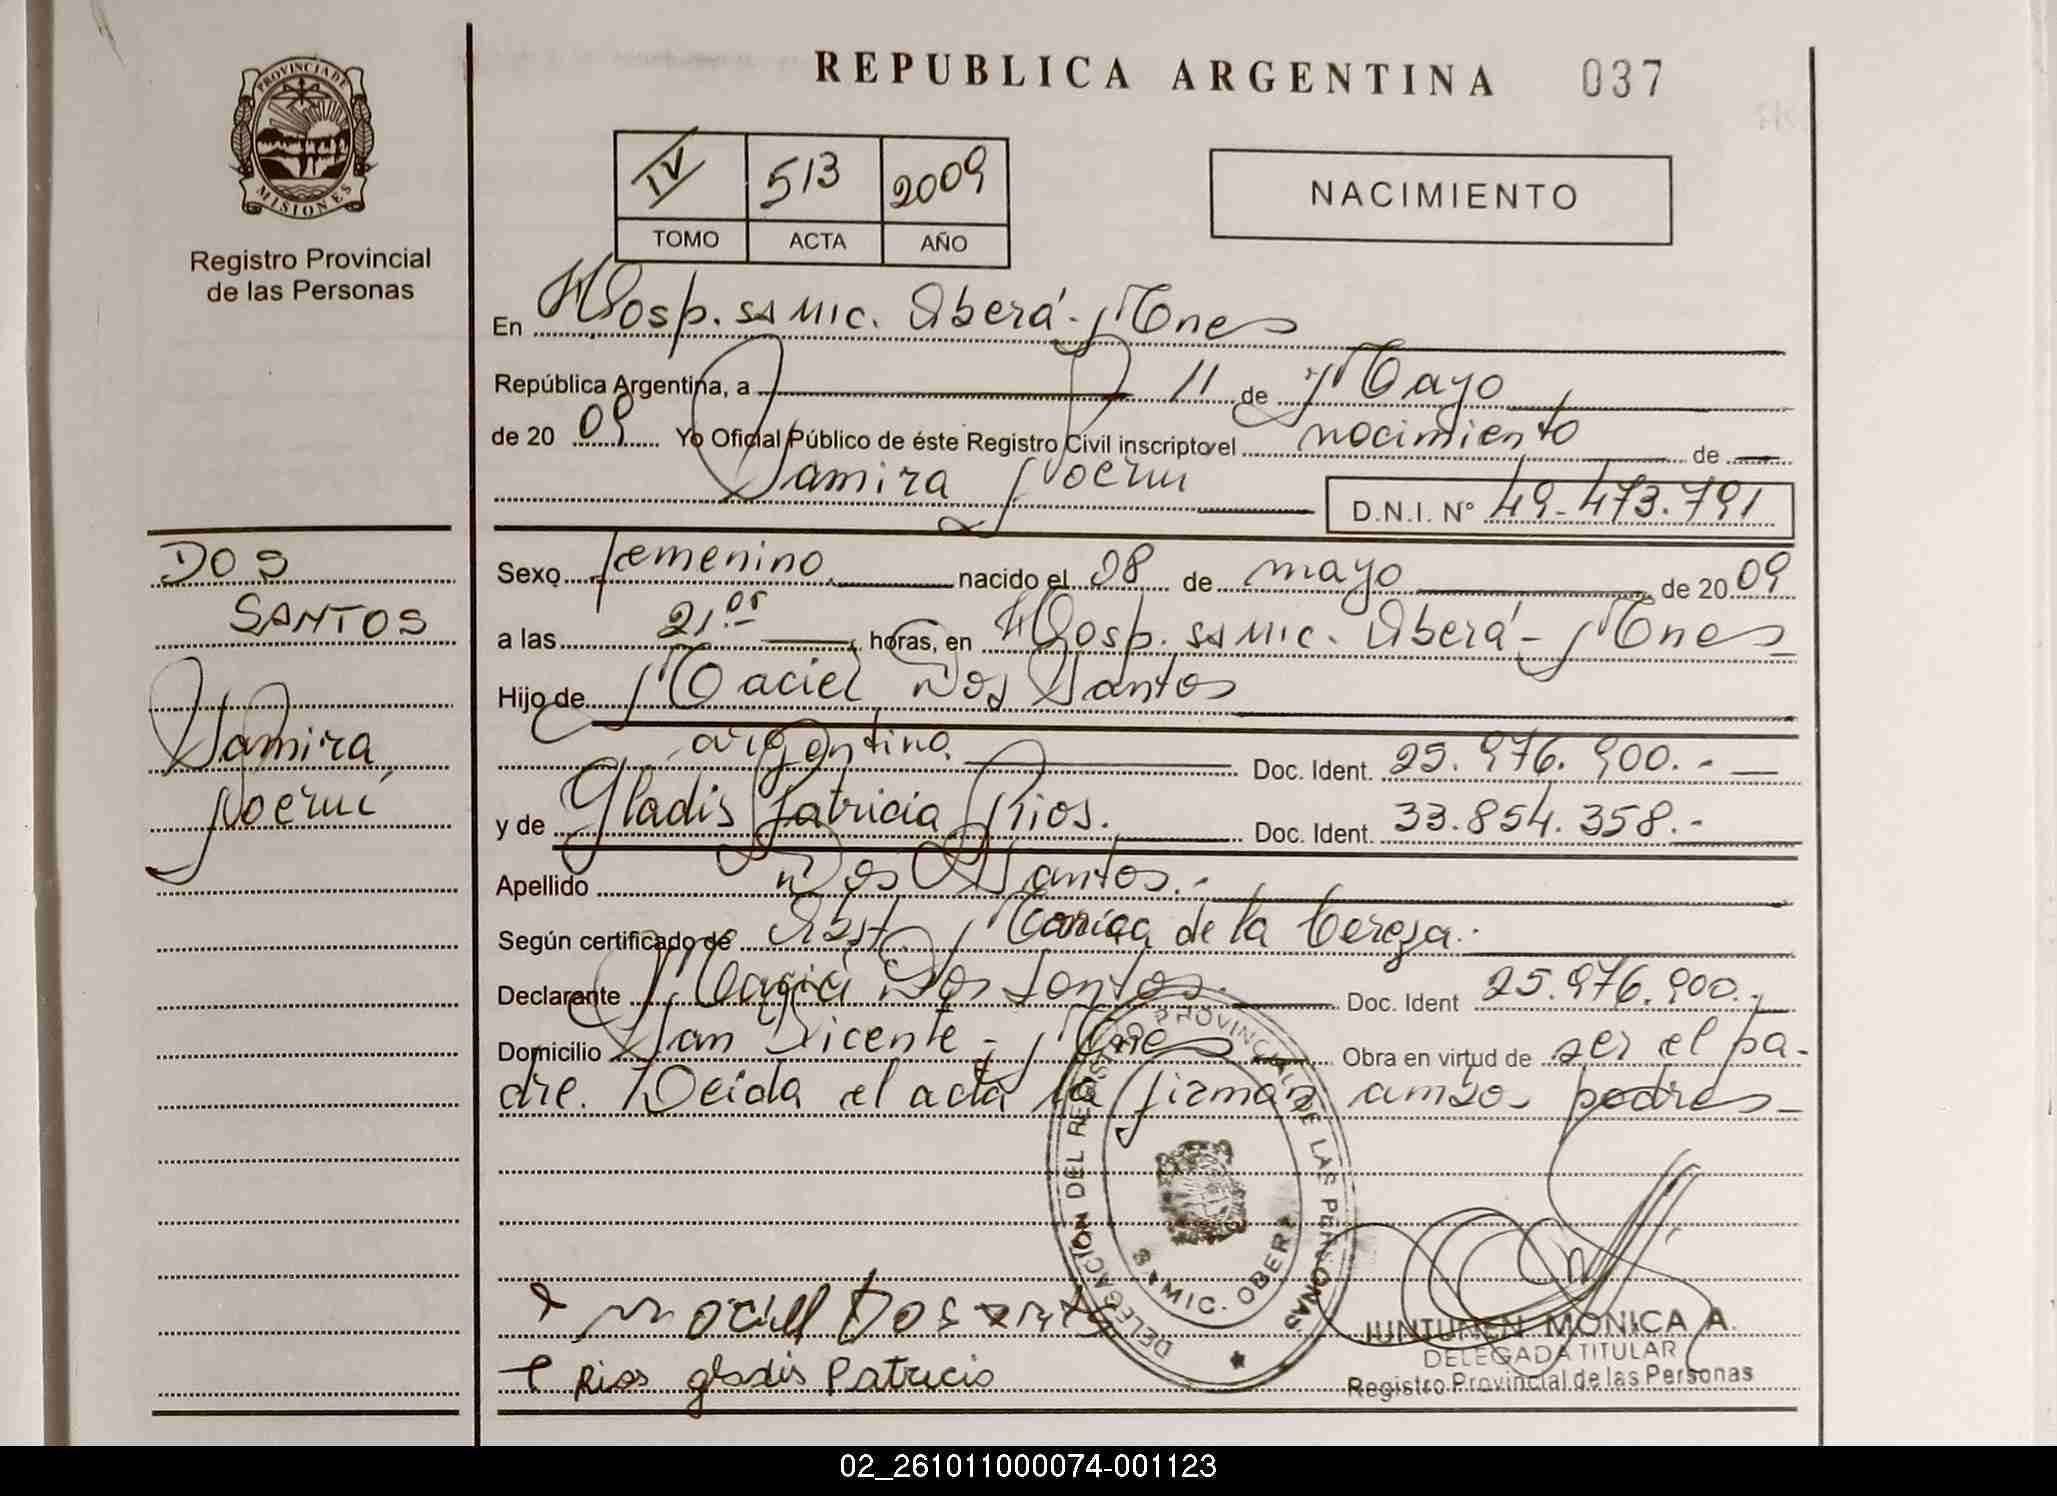 REPUBLICA ARGENTINA 037
PROVINCIA DE
MISIONES
Registro Provincial
de las Personas
IV 513 2009
TOMO ACTA AÑO
NACIMIENTO
En Hosp. SAMIC. Oberá - Mnes
República Argentina, a 11 de Mayo
de 2009 Yo Oficial Público de éste Registro Civil inscripto el nacimiento de
Samira Noemi
D.N.I. N° 49.473.791
DOS
SANTOS
Samira
Noemí
Sexo femenino nacido el 08 de mayo de 2009
a las 21.05 horas, en Hosp. SAMIC. Oberá - Mnes
Hijo de Maciel Dos Santos
argentino Doc. Ident. 25.976.900.-
y de Gladis Patricia Rios. Doc. Ident. 33.854.358.-
Apellido Dos Santos.-
Según certificado de Obst. de la
Declarante Maciel Dos Santos. Doc. Ident 25.976.900.-
Domicilio San Vicente - Mnes Obra en virtud de ser el pa-
dre. Leida el acta la firman ambos padres
DELEGACION DEL REGISTRO PROVINCIAL DE LAS PERSONAS
SAMIC. OBERA
Maciel Dos Santos
Rios gladis Patricia
JUNTUNEN MONICA A.
DELEGADA TITULAR
Registro Provincial de las Personas
02_261011000074-001123